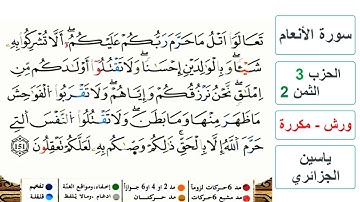 تَعَالَوَاْ اتْلُ مَا حَرَّمَ رَبُّكُمْ عَلَيْكُمْۖ أَلَّا تُشْرِكُواْ بِهِۦ
شَيْـٔاۖ وَبِالْوَالِدَيْنِ إِحْسَٰناۖ وَلَا تَقْتُلُوٓاْ أَوْلَٰدَكُم مِّنِ
اِمْلَٰقٖ نَّحْنُ نَرْزُقُكُمْ وَإِيَّاهُمْۖ وَلَا تَقْرَبُواْ الْفَوَٰحِشَ
مَا ظَهَرَ مِنْهَا وَمَا بَطَنَۖ وَلَا تَقْتُلُواْ النَّفْسَ اَلتِے
حَرَّمَ اَللَّهُ إِلَّا بِالْحَقِّۖ ذَٰلِكُمْ وَصَّيٰكُم بِهِۦ لَعَلَّكُمْ تَعْقِلُونَۖ 151
سورة الأنعام
الحزب 3
الثمن 2
ورش - مكررة
ياسين
الجزائري
مد 6 حركات لزوماً
مد 2 أو 4 أو 6 جوازاً
إخفاء، ومواقع الغنّة
تفخيم
مد مشبع 6 حركات
مد حركتان
إدغام، ومالا يلفظ
قلقلة